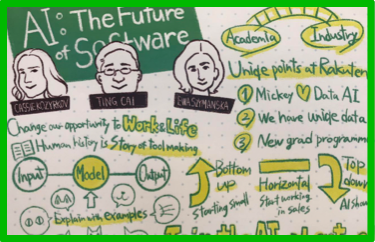 AI: The Future
of Software
CASSIE KOZYRKOV
TING CAI
EWA SZYMANSKA
Change our opportunity to Work & Life
Human history is Story of tool making
Input
Model
Output
Explain with examples
Academia
Industry
Uniqe points at Rakuten
1 Mickey ♡ Data AI
2 We have uniqe data
3 New grad programm
Bottom
up
Starting small
Horizontal
Start working
in sales
Top
down